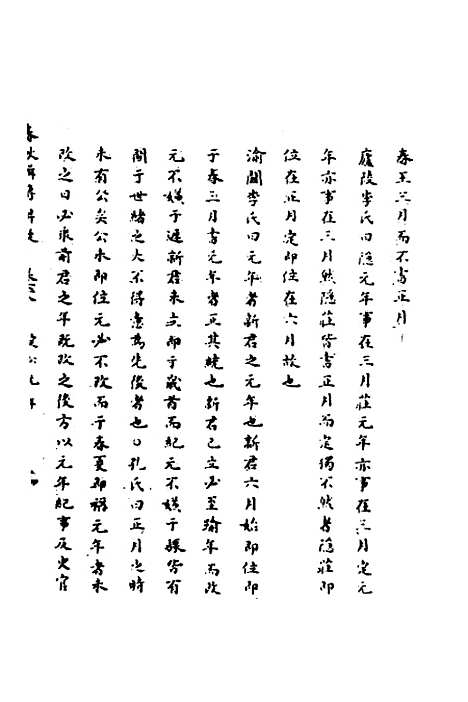 春王三月而不書正月
廬陵李氏曰隱元年事在三月莊元年亦事在三月定元
年亦事在三月然隱莊皆書正月而定獨不然者隱莊即
位在正月定即位在六月故也
渝關李氏曰元年者新君之元年也新君六月始即位即
于春三月書元年者正其統也新君已立必至踰年而改
元不嫌于遲新君未立即于歲首而紀元不嫌于驟皆有
關于世緒之大不得意為先後者也○孔氏曰正月之時
未有公矣公未即位元必不改而于春夏即稱元年者未
改之日必乘前君之年既改之後方以元年紀事及史官
春秋 定公元年